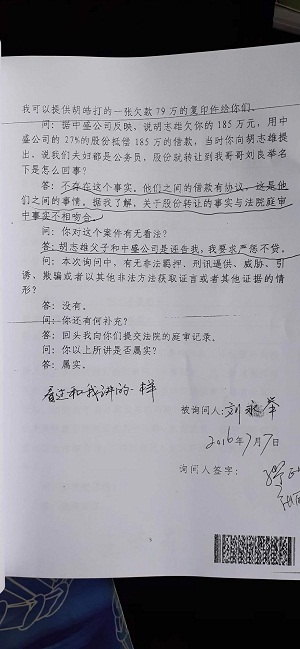 我可以提供胡皓打的一张欠款79万的复印件给你们。
问：据中盛公司反映，说胡志雄欠你的185万元，用中
盛公司的27%的股份抵偿185万的借款，当时你向胡志雄提
出，说我们夫妇都是公务员，股份就转让到我哥哥刘良举名
下是怎么回事？
答：不存在这个事实。他们之间的借款有协议，这是他
们之间的事情。据我了解，关于股份转让的事实与法院庭审
中事实不相吻合。
问：你对这个案件有无看法？
答：胡志雄父子和中盛公司是诬告我，我要求严惩不贷。
问：本次询问中，有无非法羁押、刑讯逼供、威胁、引
诱、欺骗或者以其他非法方法获取证言或者其他证据的情
形？
答：没有。
问：你还有何补充？
答：回头我向你们提交法院的庭审记录。
问：你以上所讲是否属实？
答：属实。
看过和我讲的一样
被询问人：刘 举
2016年7月7日
询问人签字：